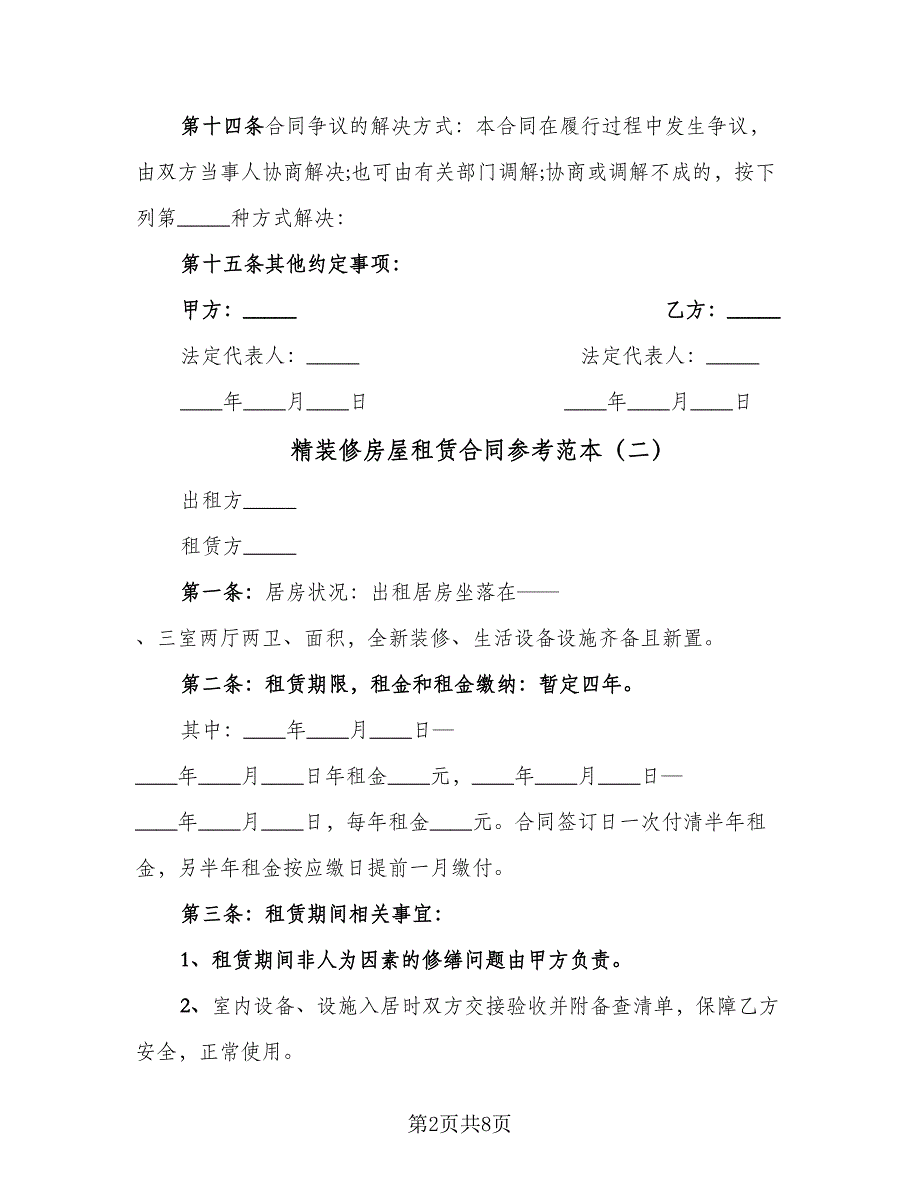 第十四条合同争议的解决方式：本合同在履行过程中发生争议，
由双方当事人协商解决;也可由有关部门调解;协商或调解不成的，按下
列第_____种方式解决：
第十五条其他约定事项：
甲方：_____ 乙方：_____
法定代表人：_____ 法定代表人：_____
____年____月____日 ____年____月____日
精装修房屋租赁合同参考范本（二）
出租方_____
租赁方_____
第一条：居房状况：出租居房坐落在——
、三室两厅两卫、面积，全新装修、生活设备设施齐备且新置。
第二条：租赁期限，租金和租金缴纳：暂定四年。
其中：____年____月____日—
____年____月____日年租金____元，____年____月____日—
____年____月____日，每年租金____元。合同签订日一次付清半年租
金，另半年租金按应缴日提前一月缴付。
第三条：租赁期间相关事宜：
1、租赁期间非人为因素的修缮问题由甲方负责。
2、室内设备、设施入居时双方交接验收并附备查清单，保障乙方
安全，正常使用。
第2页共8页